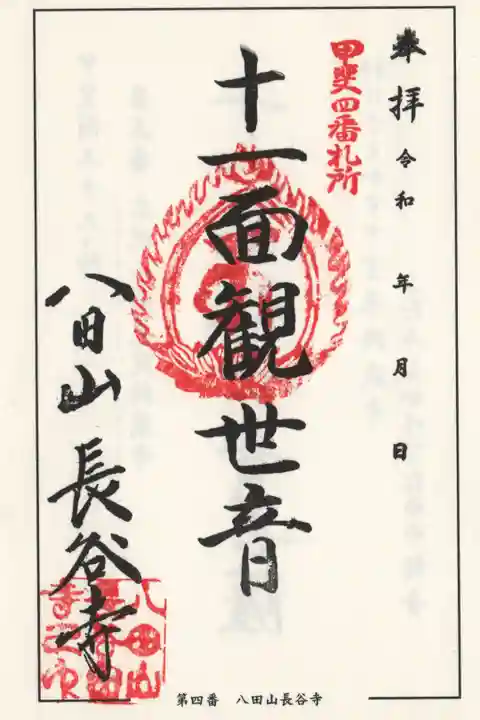 奉拝 令和 年 月 日
甲斐四番札所
十一面観世音
八田山長谷寺
第四番 八田山長谷寺